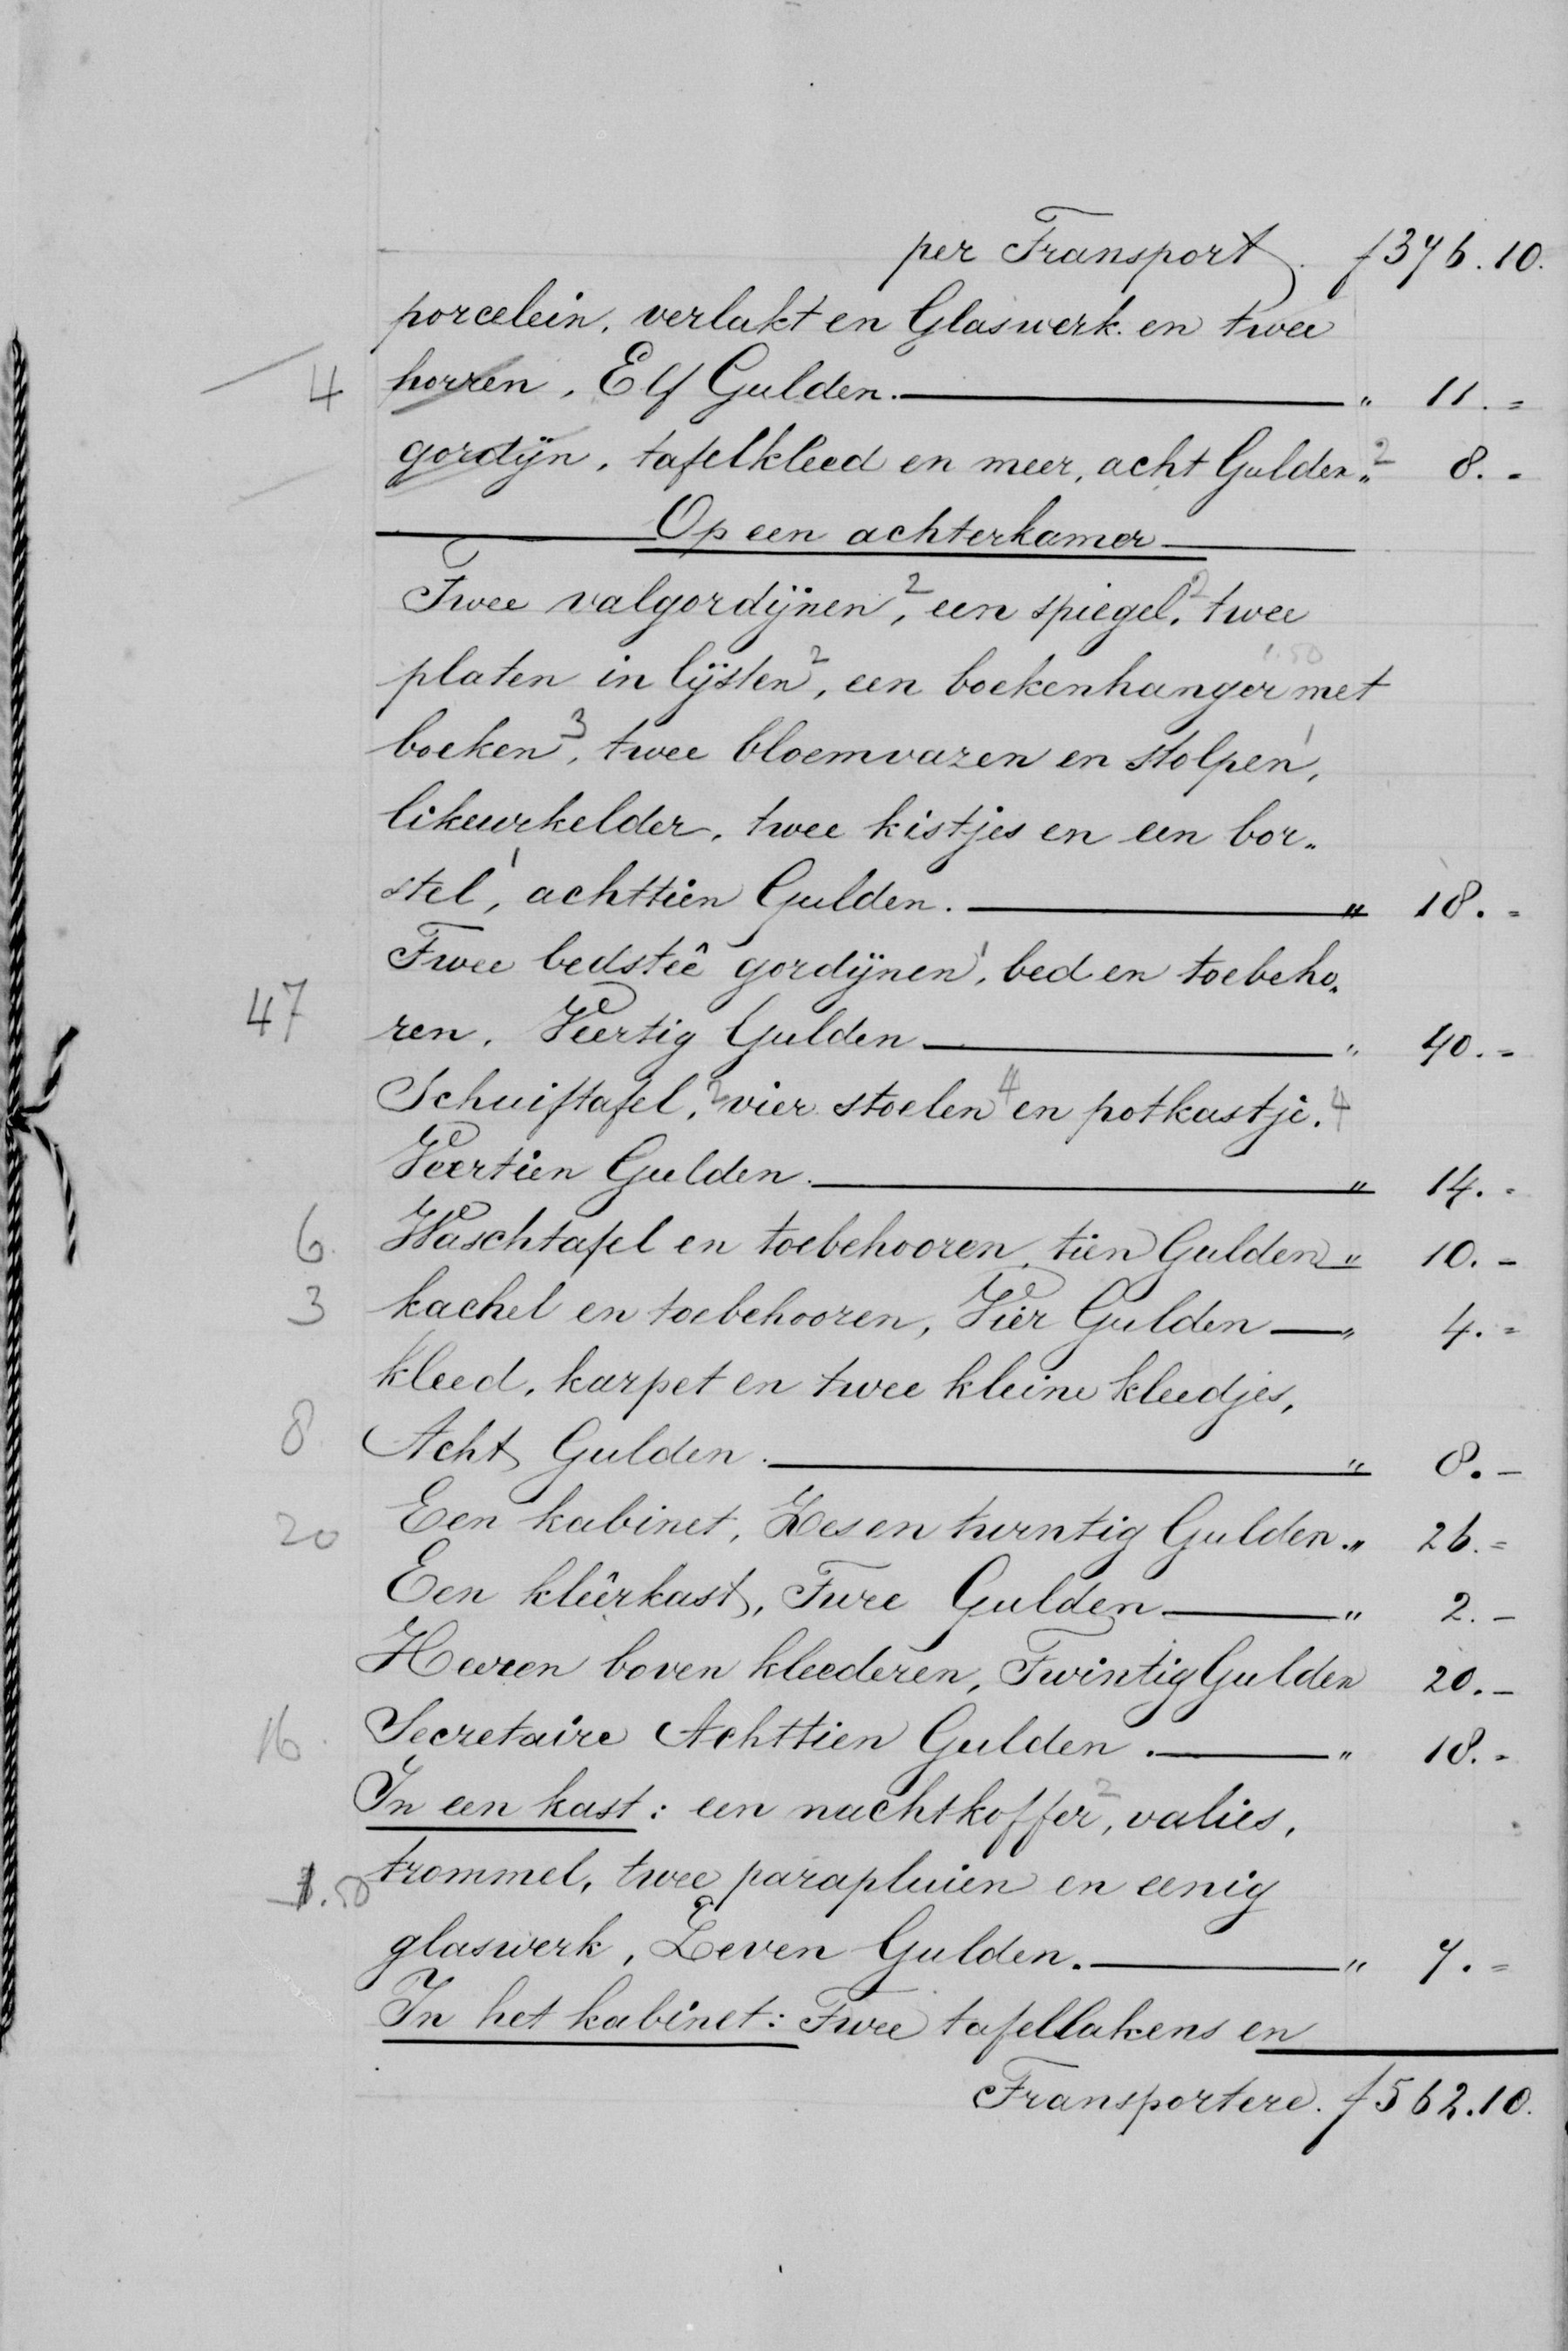 per Transport. f 376.10.
porcelein, verlakt en Glaswerk en twee
4 horren, Elf Gulden. " 11.=
gordijn, tafelkleed en meer, acht Gulden " 2 8.-
Op een achterkamer
Twee valgordijnen 2, een spiegel 2, twee
1.50
platen in lijsten 2, een boekenhanger met
boeken 3, twee bloemvazen en stolpen 1,
likeurkelder, twee kistjes en een bor„
stel 1, achttien Gulden. " 18.=
Twee bedsteê gordijnen 1, bed en toebeho„
47 ren, Veertig Gulden " 40.=
Schuiftafel, 2 vier stoelen 4 en potkastje. 4
Veertien Gulden. " 14.-
6. Waschtafel en toebehooren, tien Gulden " 10.-
3 kachel en toebehooren, Vier Gulden " 4.=
kleed, karpet en twee kleine kleedjes,
8. Acht Gulden. " 8.-
20 Een kabinet, Zes en twintig Gulden. " 26.=
Een kleêrkast, Twee Gulden " 2.-
Heeren boven kleederen, Twintig Gulden 20.-
16. Secretaire Achttien Gulden. " 18.-
In een kast: een nachtkoffer 2, valies,
1.50 trommel, twee parapluien en eenig
glaswerk, Zeven Gulden. " 7.=
In het kabinet: Twee tafellakens en
Transportere. f 562.10.